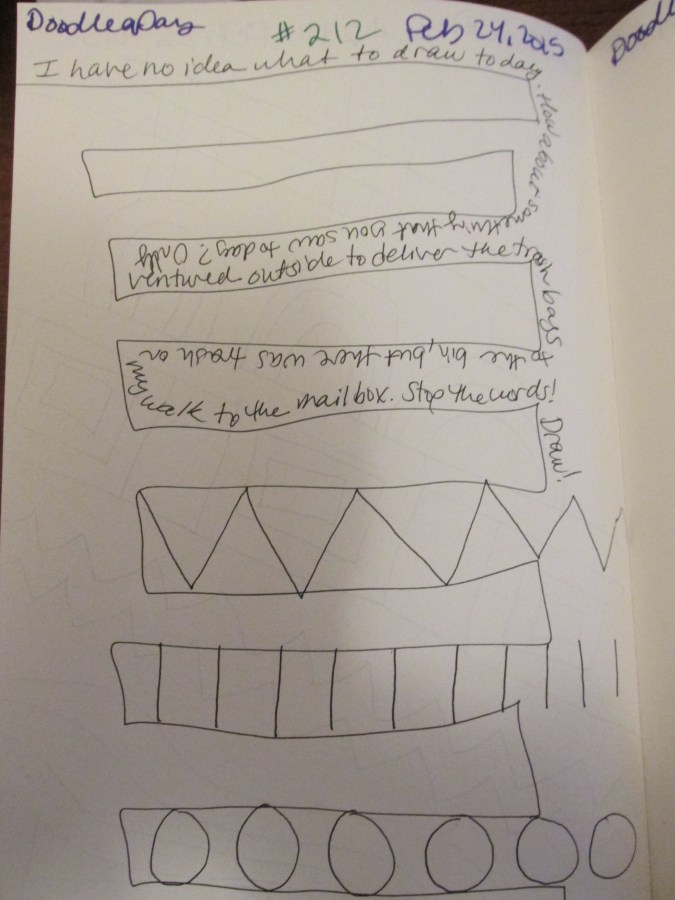 DoodleaDay #212 Feb 24, 2015
Doodle
I have no idea what to draw today.
How about
something that you saw today? Only
ventured outside to deliver the trash bags
to the bin, but there was trash on
my walk to the mailbox. Stop the words!
Draw!